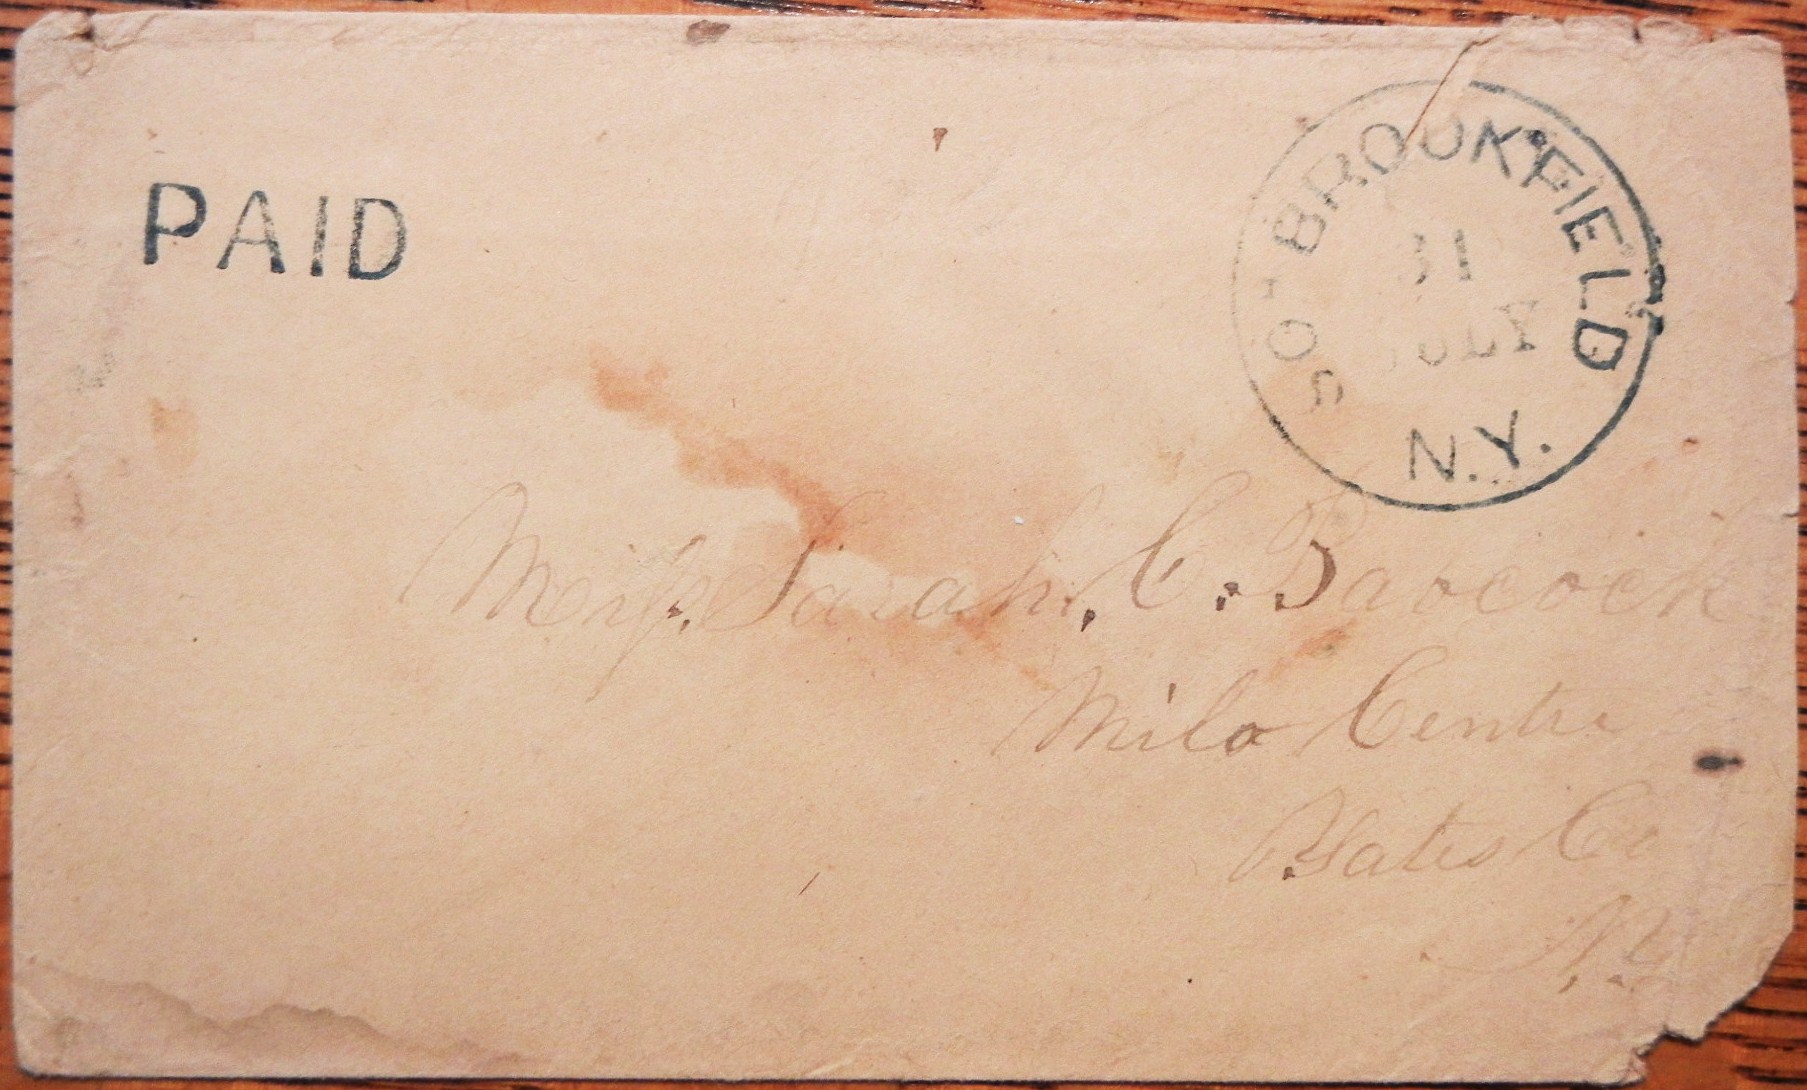 PAID
SO. BROOKFIELD
31
JULY
N.Y.
Miſs. Sarah. C. Babcock
Milo Centre
Yates Co
N.Y.